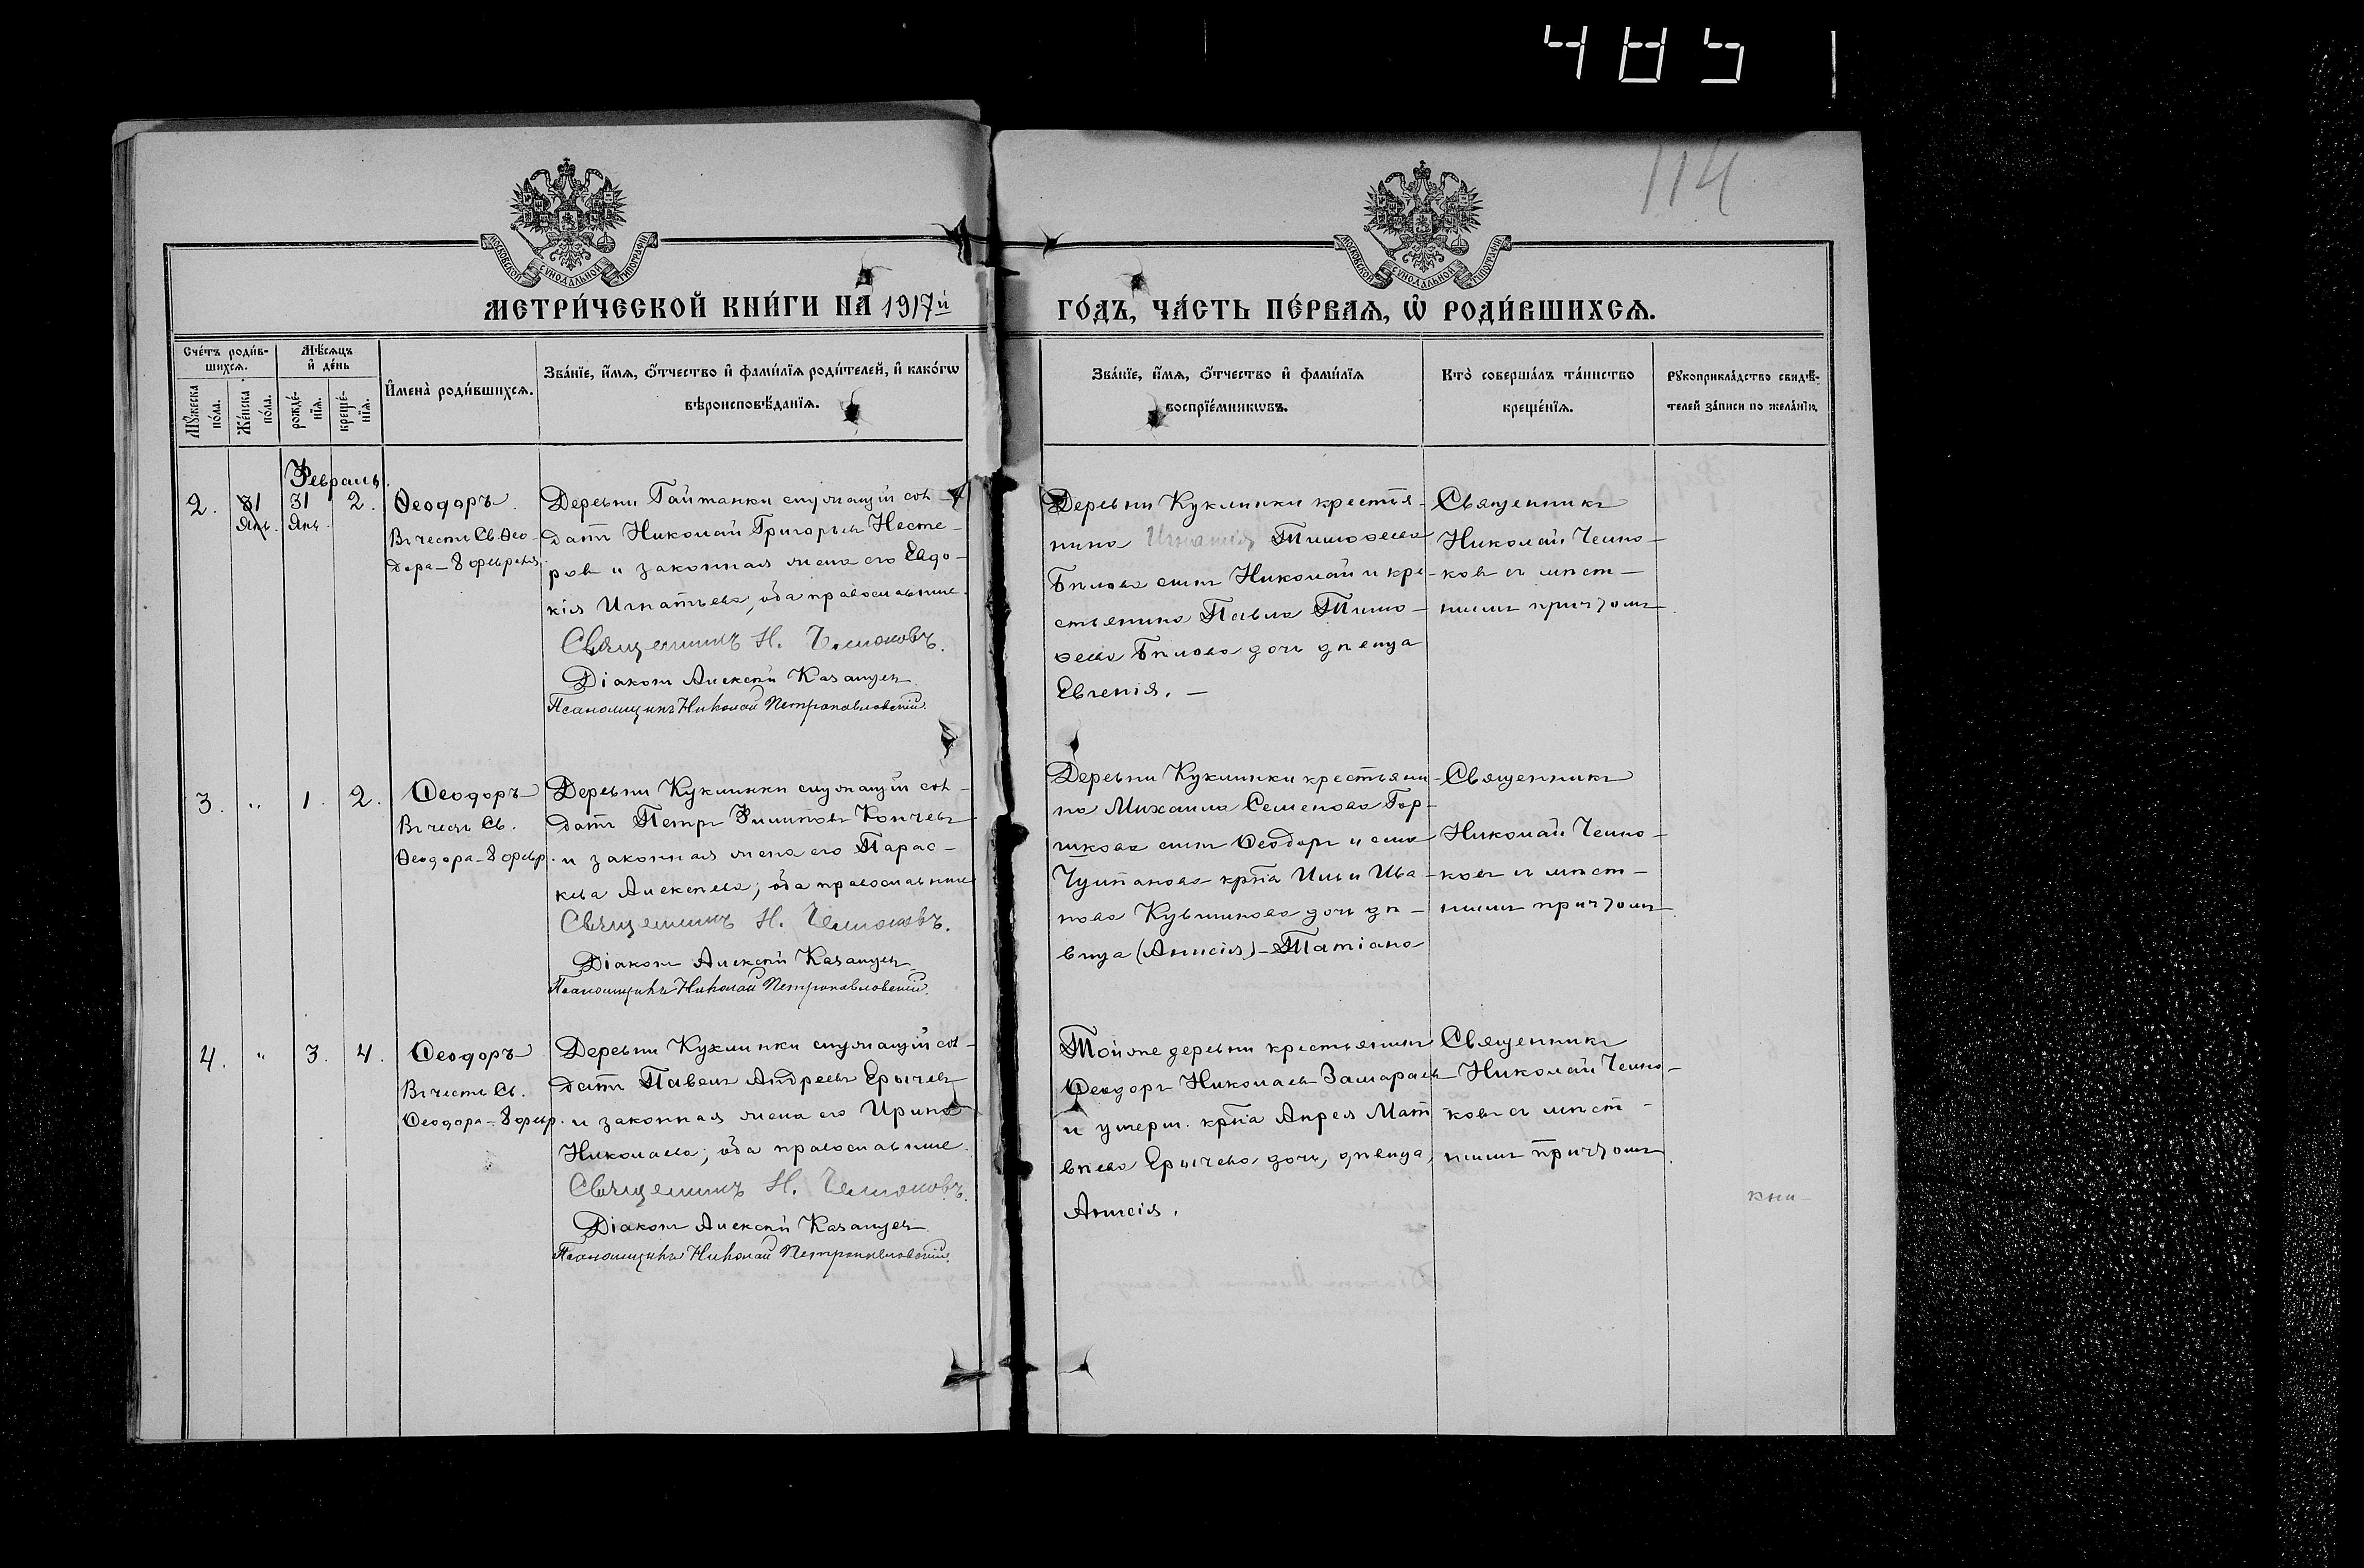 485
114
МОСКОВСКОЙ СѴНОДАЛЬНОЙ ТИПОГРАФІИ
МОСКОВСКОЙ СѴНОДАЛЬНОЙ ТИПОГРАФІИ
МЕТРИ́ЧЕСКОЙ КНИ́ГИ НА 1917й
ГО́ДЪ, ЧА́СТЬ ПЕ́РВАѦ, Ѡ҆ РОДИ́ВШИХСѦ.
Сче́тъ роди́в-
шихсѧ.
Мꙋ́жеска
по́ла.
Же́нска
по́ла.
Мѣ́сѧцъ
и҆ де́нь
рожде́-
нїѧ.
креще́-
нїѧ.
И҆мена̀ роди́вшихсѧ.
Зва́нїе, и҆́мѧ, ѻ҆́тчество и҆ фами́лїѧ роди́телей, и҆ како́гѡ
вѣроисповѣ́данїѧ.
Зва́нїе, и҆́мѧ, ѻ҆́тчество и҆ фами́лїѧ
воспрїе́мникѡвъ.
Кто̀ соверша́лъ та́инство
креще́нїѧ.
Рꙋкоприкла́дство свидѣ́-
телей за́писи по жела́нїю.
Февраль.
2. 31 31 2.
Янь. Янь.
Ѳеодоръ.
Въ честь Св. Ѳео-
дора - 8 февраля.
Деревни Гайтанки служащій сол-
датъ Николай Григорьевъ Несте-
ровъ и законная жена его Евдо-
кія Игнатьева, оба православные.
Священникъ Н. Челноковъ.
Діаконъ Алексѣй Казанцевъ.
Псаломщикъ Николай Петропавловскій.
Деревни Куклинки крестья-
нина Игнатія Тимоѳеева
Бѣлова сынъ Николай и кре-
стьянина Павла Тимо-
ѳеева Бѣлова дочь дѣвица
Евгенія. -
Священникъ
Николай Челно-
ковъ съ мѣст-
нымъ причтомъ.
3. " 1. 2.
Ѳеодоръ
Въ честь Св.
Ѳеодора - 8 февр.
Деревни Куклинки служащій сол-
датъ Петръ Филиповъ Копчевъ
и законная жена его Парас-
кева Алексѣева; оба православные
Священникъ Н. Челноковъ.
Діаконъ Алексѣй Казанцевъ.
Псаломщикъ Николай Петропавловскій.
Деревни Куклинки крестьяни-
на Михаила Семенова Гор-
шкова сынъ Ѳеодоръ и села
кр҃на Ильи Ива-
нова дочь дѣ-
вица (Анисія) - Татіана
Священникъ
Николай Челно-
ковъ съ мѣст-
нымъ причтомъ.
4. " 3. 4.
Ѳеодоръ
Въ честь Св.
Ѳеодора - 8 февр.
Деревни Куклинки служащій сол-
датъ Павелъ Андреевъ Ерычевъ
и законная жена его Ирина
Николаева; оба православные.
Священникъ Н. Челноковъ.
Діаконъ Алексѣй Казанцевъ.
Псаломщикъ Николай Петропавловскій.
Той же деревни крестьянинъ
Ѳеодоръ Николаевъ Замараевъ
и умерш. кр҃на Андрея Мат-
вѣева Ерычева дочь, дѣвица,
Анисія.
Священникъ
Николай Челно-
ковъ съ мѣст-
нымъ причтомъ.
кни-